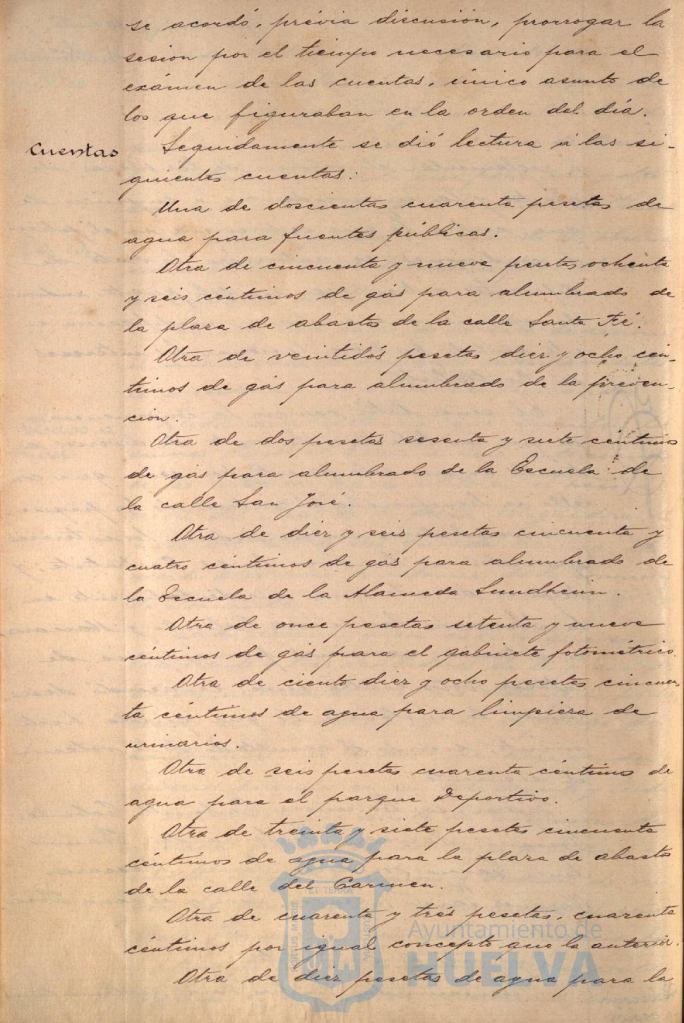 se acordó, prévia discusión, prorrogar la
sesion por el tiempo necesario para el
exámen de las cuentas, único asunto de
los que figuraban en la orden del día.
Cuentas
Seguidamente se dió lectura á las si-
guientes cuentas:
Una de doscientas cuarenta pesetas de
agua para fuentes públicas.
Otra de cincuenta y nueve pesetas ochenta
y seis céntimos de gás para alumbrado de
la plaza de abastos de la calle Santa Fé.
Otra de veintidós pesetas diez y ocho cén-
timos de gás para alumbrado de la preven-
cion.
Otra de dos pesetas sesenta y siete céntimos
de gás para alumbrado de la Escuela de
la calle San José.
Otra de diez y seis pesetas cincuenta y
cuatro céntimos de gás para alumbrado de
la Escuela de la Alameda Sundheim.
Otra de once pesetas setenta y nueve
céntimos de gás para el gabinete fotométrico.
Otra de ciento diez y ocho pesetas cincuen-
ta céntimos de agua para limpieza de
urinarios.
Otra de seis pesetas cuarenta céntimos de
agua para el parque Deportivo.
Otra de treinta y siete pesetas cincuenta
céntimos de agua para la plaza de abastos
de la calle del Carmen.
Otra de cuarenta y trés pesetas, cuarenta
céntimos por igual concepto que la anterior.
Otra de diez pesetas de agua para la
Ayuntamiento de
HUELVA